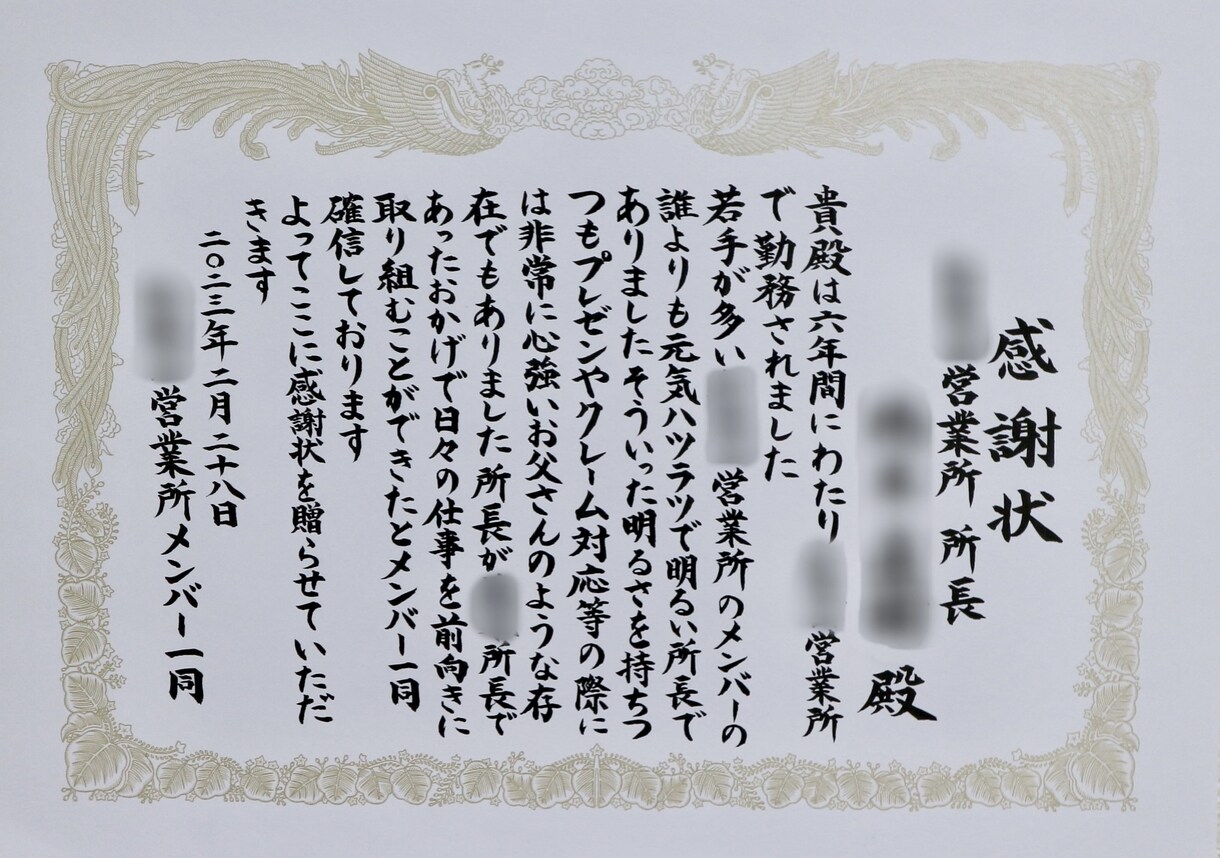 感謝状
営業所 所長
殿
貴殿は六年間にわたり 営業所
で勤務されました
若手が多い 営業所のメンバーの
誰よりも元気ハツラツで明るい所長で
ありましたそういった明るさを持ちつ
つもプレゼンやクレーム対応等の際に
は非常に心強いお父さんのような存
在でもありました所長が 所長で
あったおかげで日々の仕事を前向きに
取り組むことができたとメンバー一同
確信しております
よってここに感謝状を贈らせていただ
きます
二〇二三年二月二十八日
営業所メンバー一同